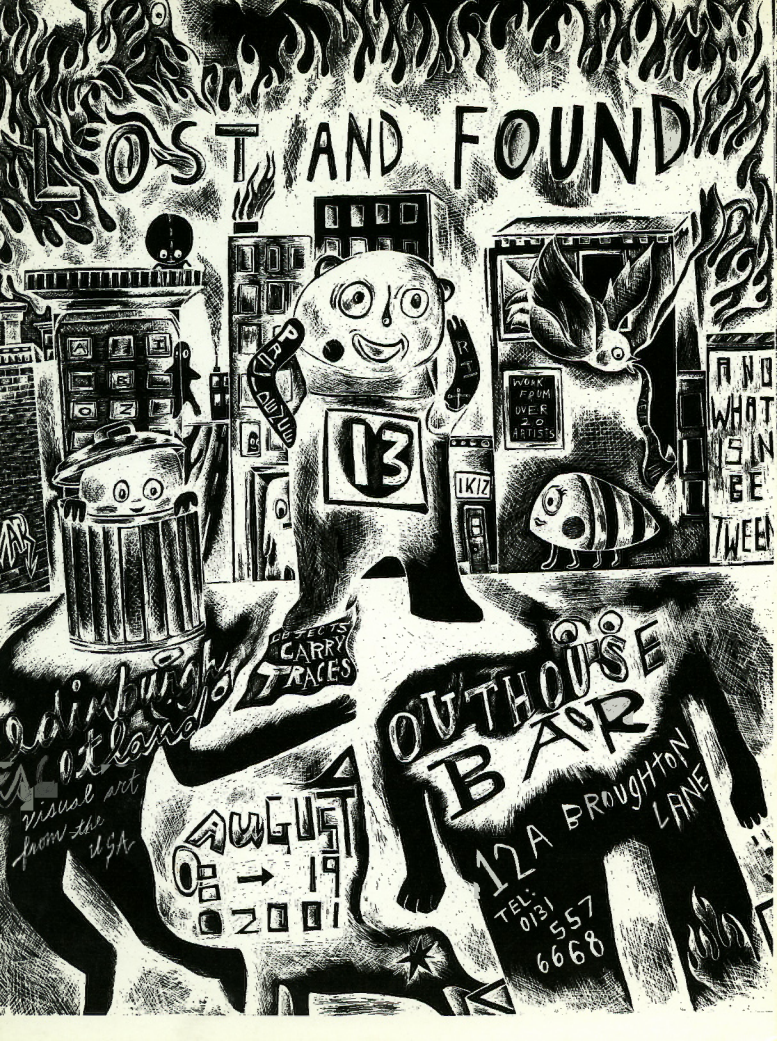 LOST AND FOUND
ART
WORK
FROM
OVER
20
ARTISTS
AND
WHAT
IS IN
BE
TWEEN
13
1K12
OBJECTS
CARRY
TRACES
edinburgh
scotland
visual art
from the
USA
OUTHOUSE
BAR
12A BROUGHTON
LANE
TEL:
0131
557
6668
AUGUST
→ 19
2001